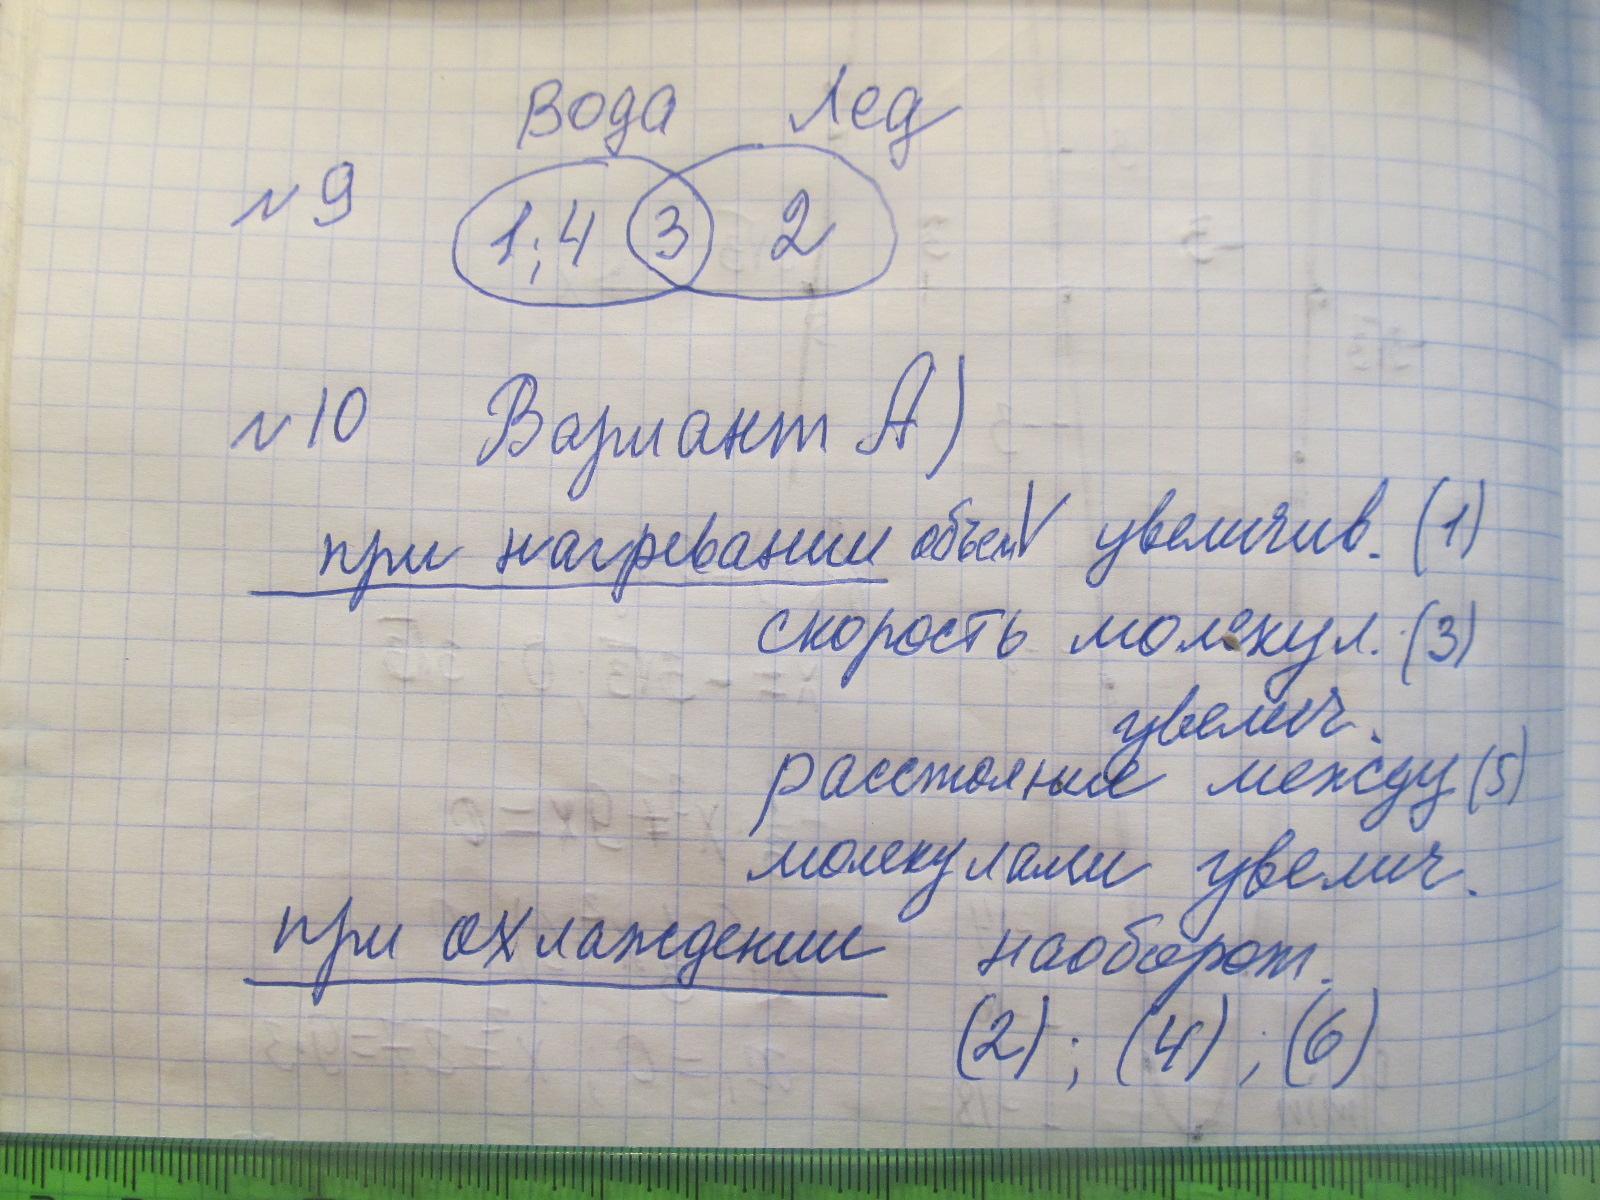 Вода Лед
№9 1;4 3 2
№10 Вариант А)
при нагревании объем V увеличив. (1)
скорость молекул. (3)
увелич.
расстояние между (5)
молекулами увелич.
при охлаждении наоборот.
(2); (4); (6)